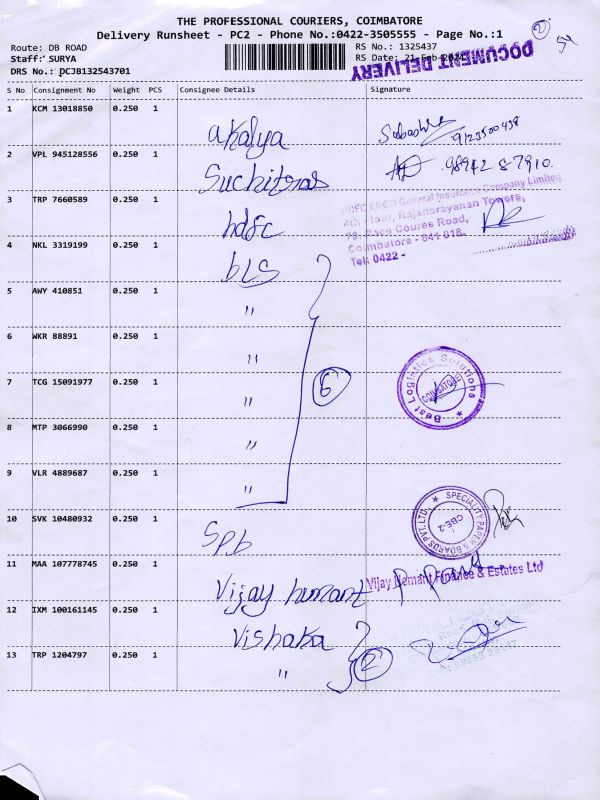 THE PROFESSIONAL COURIERS, COIMBATORE
Delivery Runsheet - PC2 - Phone No.:0422-3505555 - Page No.:1
Route: DB ROAD RS No.: 1325437
Staff: SURYA RS Date: 21-Feb-
DRS No.: DCJB132543701
DOCUMENT DELIVERY
2
S No Consignment No Weight PCS Consignee Details Signature
1 KCM 13018850 0.250 1 akalya
2 VPL 945128556 0.250 1
3 TRP 7660589 0.250 1 hdfc
General Insurance Company Limited
4th Floor, Rajanarayanan Towers,
Race Course Road,
Coimbatore - 641 018.
Tel: 0422 -
4 NKL 3319199 0.250 1 bLS
5 AWY 410851 0.250 1 "
6 WKR 88891 0.250 1 "
7 TCG 15091977 0.250 1 " 6
Best Logistics Solutions
COIMBATORE
8 MTP 3066990 0.250 1 "
9 VLR 4889687 0.250 1 "
10 SVK 10480932 0.250 1 Spb
SPECIALITY PAPER & BOARDS PVT. LTD.
CBE-2
11 MAA 107778745 0.250 1 Vijay hemant
Vijay Hemant Finance & Estates Ltd
12 IXM 100161145 0.250 1 Vishaka
13 TRP 1204797 0.250 1 " 2